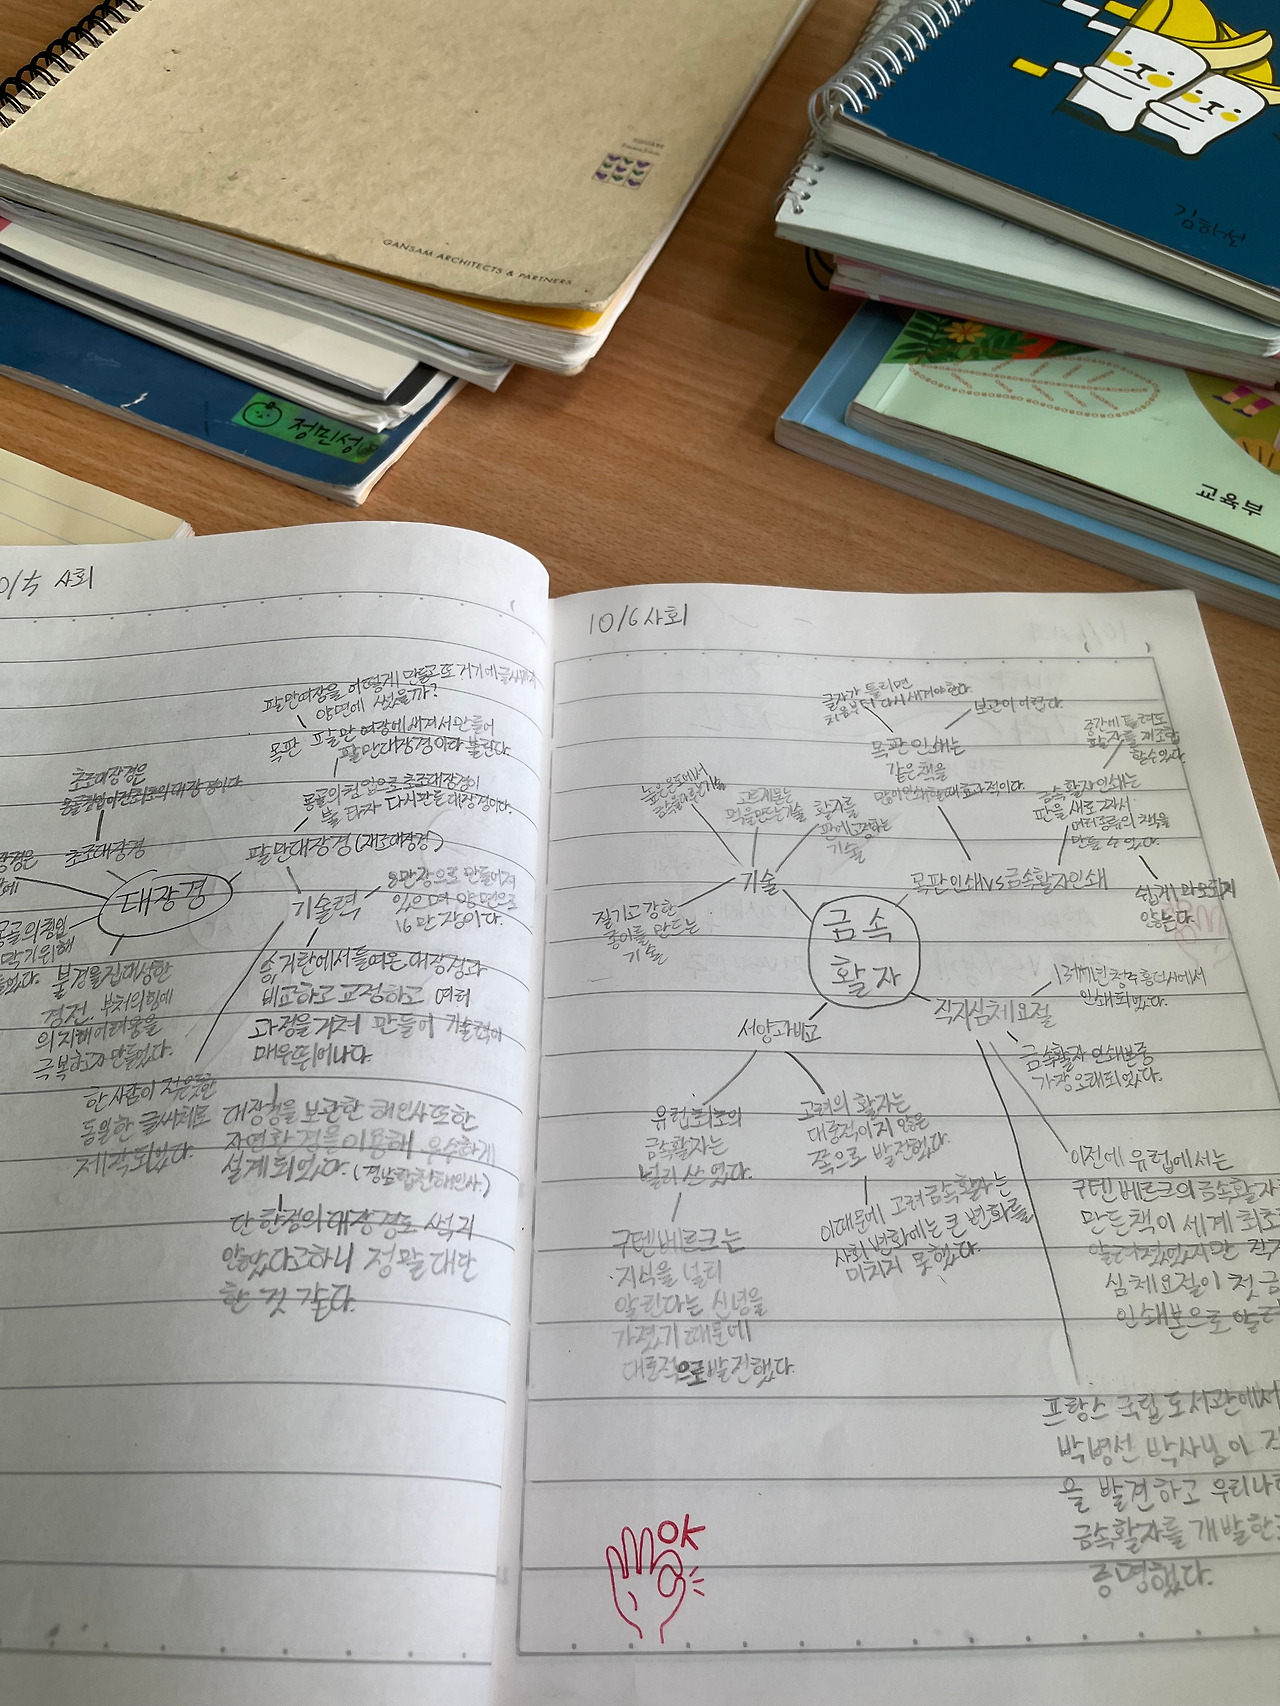 SQUARE
GANSAM ARCHITECTS & PARTNERS
김하선
정민성
교육부
사회
팔만대장을 어떻게 만들고 또 거기에
양면에 썼을까?
목판 팔만 여장에 새겨서 만들어
팔만대장경이라 불린다.
초조대장경은
몽골의 침입으로 초조대장경이
불 타자 다시 만든 대장경이다.
초조대장경
팔만대장경(재조대장경)
대장경
기술력
8만장으로 만들어져
있으며 양면으로
16만 장이다.
몽골의 침입
막기위해
불경을 집대성한
경전. 부처의 힘에
의지해 어려움을
극복하고자 만들었다.
송, 거란에서 들여온 대장경과
비교하고 교정하고 여러
과정을 거쳐 만들어 기술력이
매우 뛰어나다.
한 사람이 적은듯한
동일한 글씨체로
제작되었다.
대장경을 보관한 해인사 또한
자연환경을 이용해 우수하게
설계되었다. (경남 합천 해인사.)
단 한점의 대장경도 썩지
않았다고하니 정말 대단
한 것 같다.
10/6 사회
글자가 틀리면
처음부터 다시 새겨야한다.
보관이 어렵다.
목판 인쇄는
같은 책을
많이 인쇄할때 효과적이다.
중간에 틀려도
활자를 재조합
할수있다.
금속 활자 인쇄는
판을 새로 짜서
여러종류의 책을
만들 수 있다.
쉽게 마모되지
않는다.
높은 온도에서
금속을 다루는 기술
먹을 만드는 기술
활자를
판에 고정하는
기술
기술
질기고 강한
종이를 만드는
기술
목판 인쇄 vs 금속활자 인쇄
금속
활자
직지심체요절
1377년 청주 흥덕사에서
인쇄되었다.
금속활자 인쇄본중
가장 오래되었다.
서양과 비교
유럽 최초의
금속활자는
널리 쓰였다.
고려의 활자는
대중적이지 않은
쪽으로 발전했다.
구텐베르크는
지식을 널리
알린다는 신념을
가졌기 때문에
대중적으로 발전했다.
이때문에 고려 금속활자는
사회 변화에는 큰 변화를
미치지 못했다.
이전에 유럽에서는
구텐베르크의 금속활자
만든 책이 세계 최초
알려졌었지만
심체요절이 첫 금
인쇄본으로
프랑스 국립 도서관에서
박병선 박사님이
을 발견하고 우리나
금속활자를 개발한
증명했다.
OK